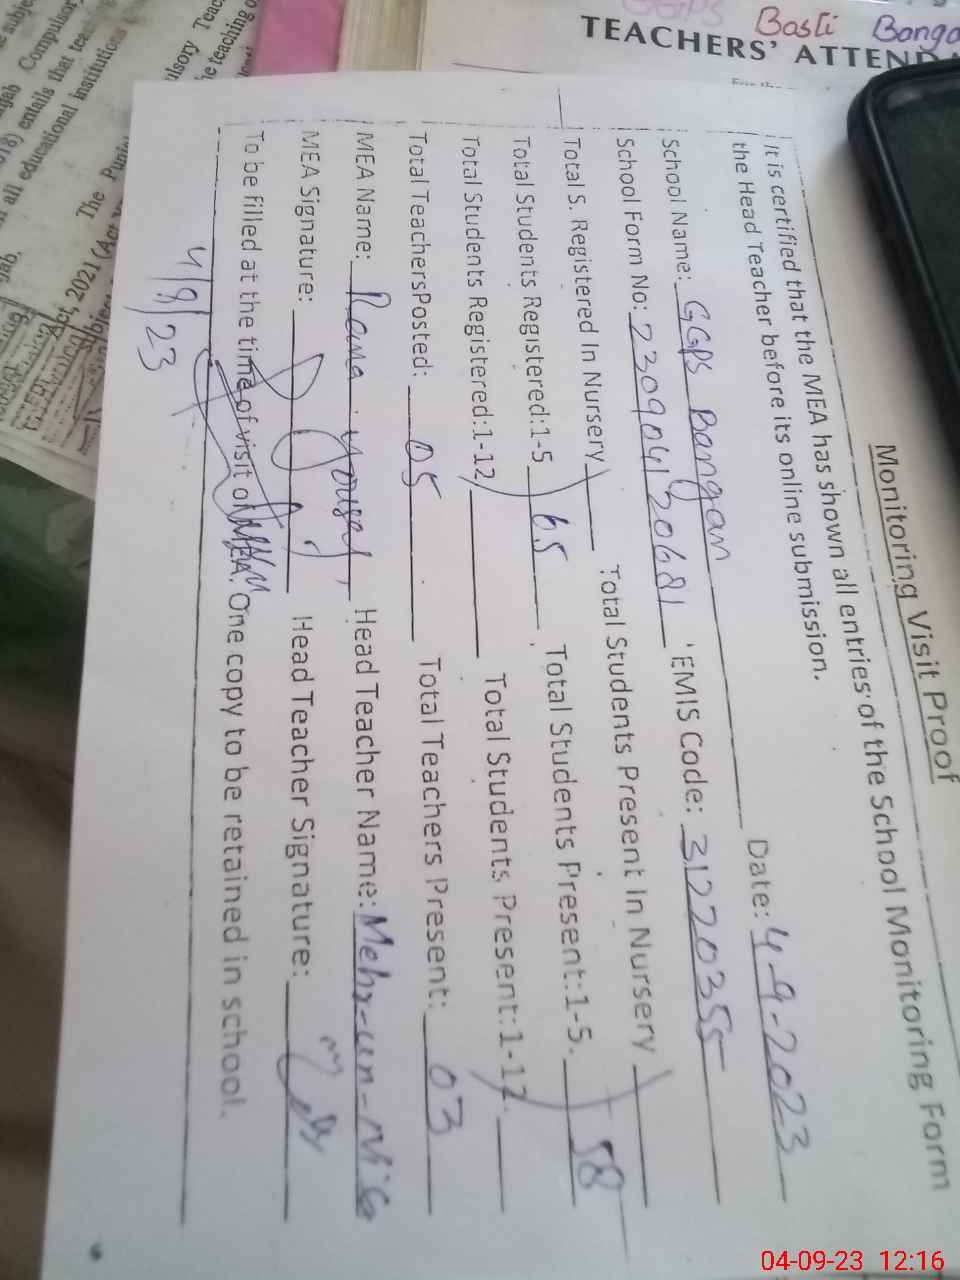 Monitoring Visit Proof
It is certified that the MEA has shown all entries of the School Monitoring Form
the Head Teacher before its online submission.
School Name: GGPS Bangan Date: 4-9-2023
School Form No: 230904120681 EMIS Code: 31220355
Total S. Registered In Nursery Total Students Present In Nursery
Total Students Registered:1-5 65 Total Students Present:1-5. 58
Total Students Registered:1-12 Total Students Present:1-12.
Total TeachersPosted: 05 Total Teachers Present: 03
MEA Name: Rana Yousaf, Head Teacher Name: Mehr-un-Nisa
MEA Signature: Head Teacher Signature:
To be filled at the time of visit of MEA. One copy to be retained in school.
4/9/23
Basti
TEACHERS' ATTEND
Compulsory
entails that
all educational institutions
Act, 2021
04-09-23 12:16